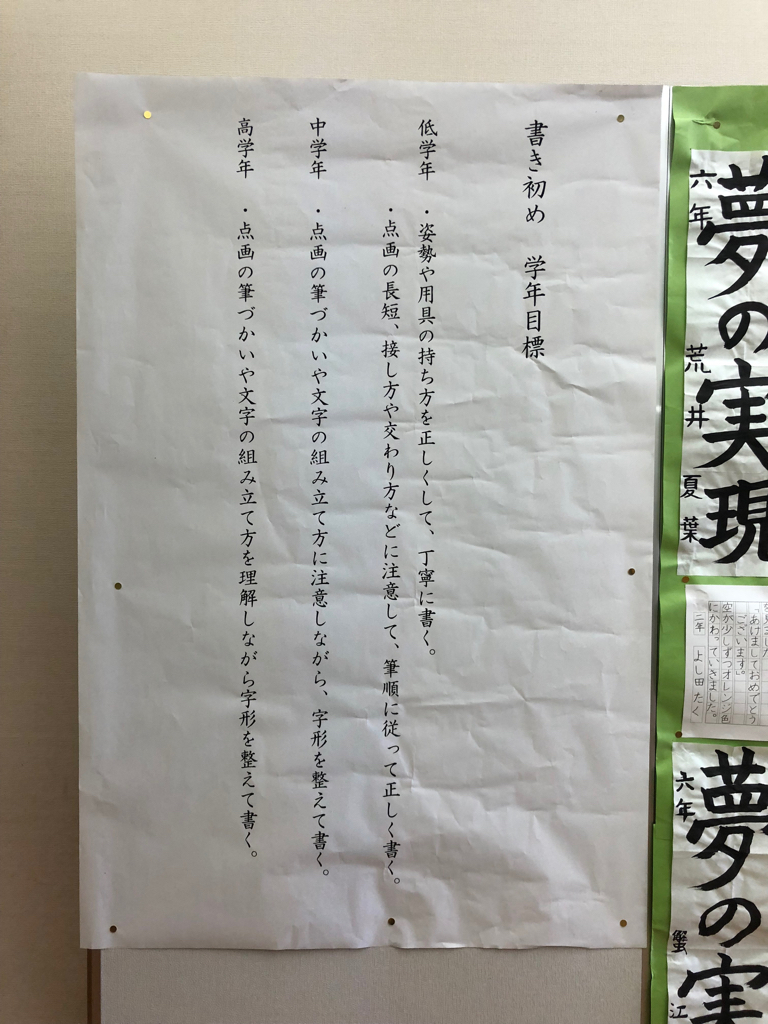 書き初め　学年目標
低学年　・姿勢や用具の持ち方を正しくして、丁寧に書く。
・点画の長短、接し方や交わり方などに注意して、筆順に従って正しく書く。
中学年　・点画の筆づかいや文字の組み立て方に注意しながら、字形を整えて書く。
高学年　・点画の筆づかいや文字の組み立て方を理解しながら字形を整えて書く。
夢の実現
六年　荒井　夏葉
「あけましておめでとう
ございます。」
空が少しずつオレンジ色
にかわっていきました。
二年　よし田　たく
夢の実
六年　蟹江